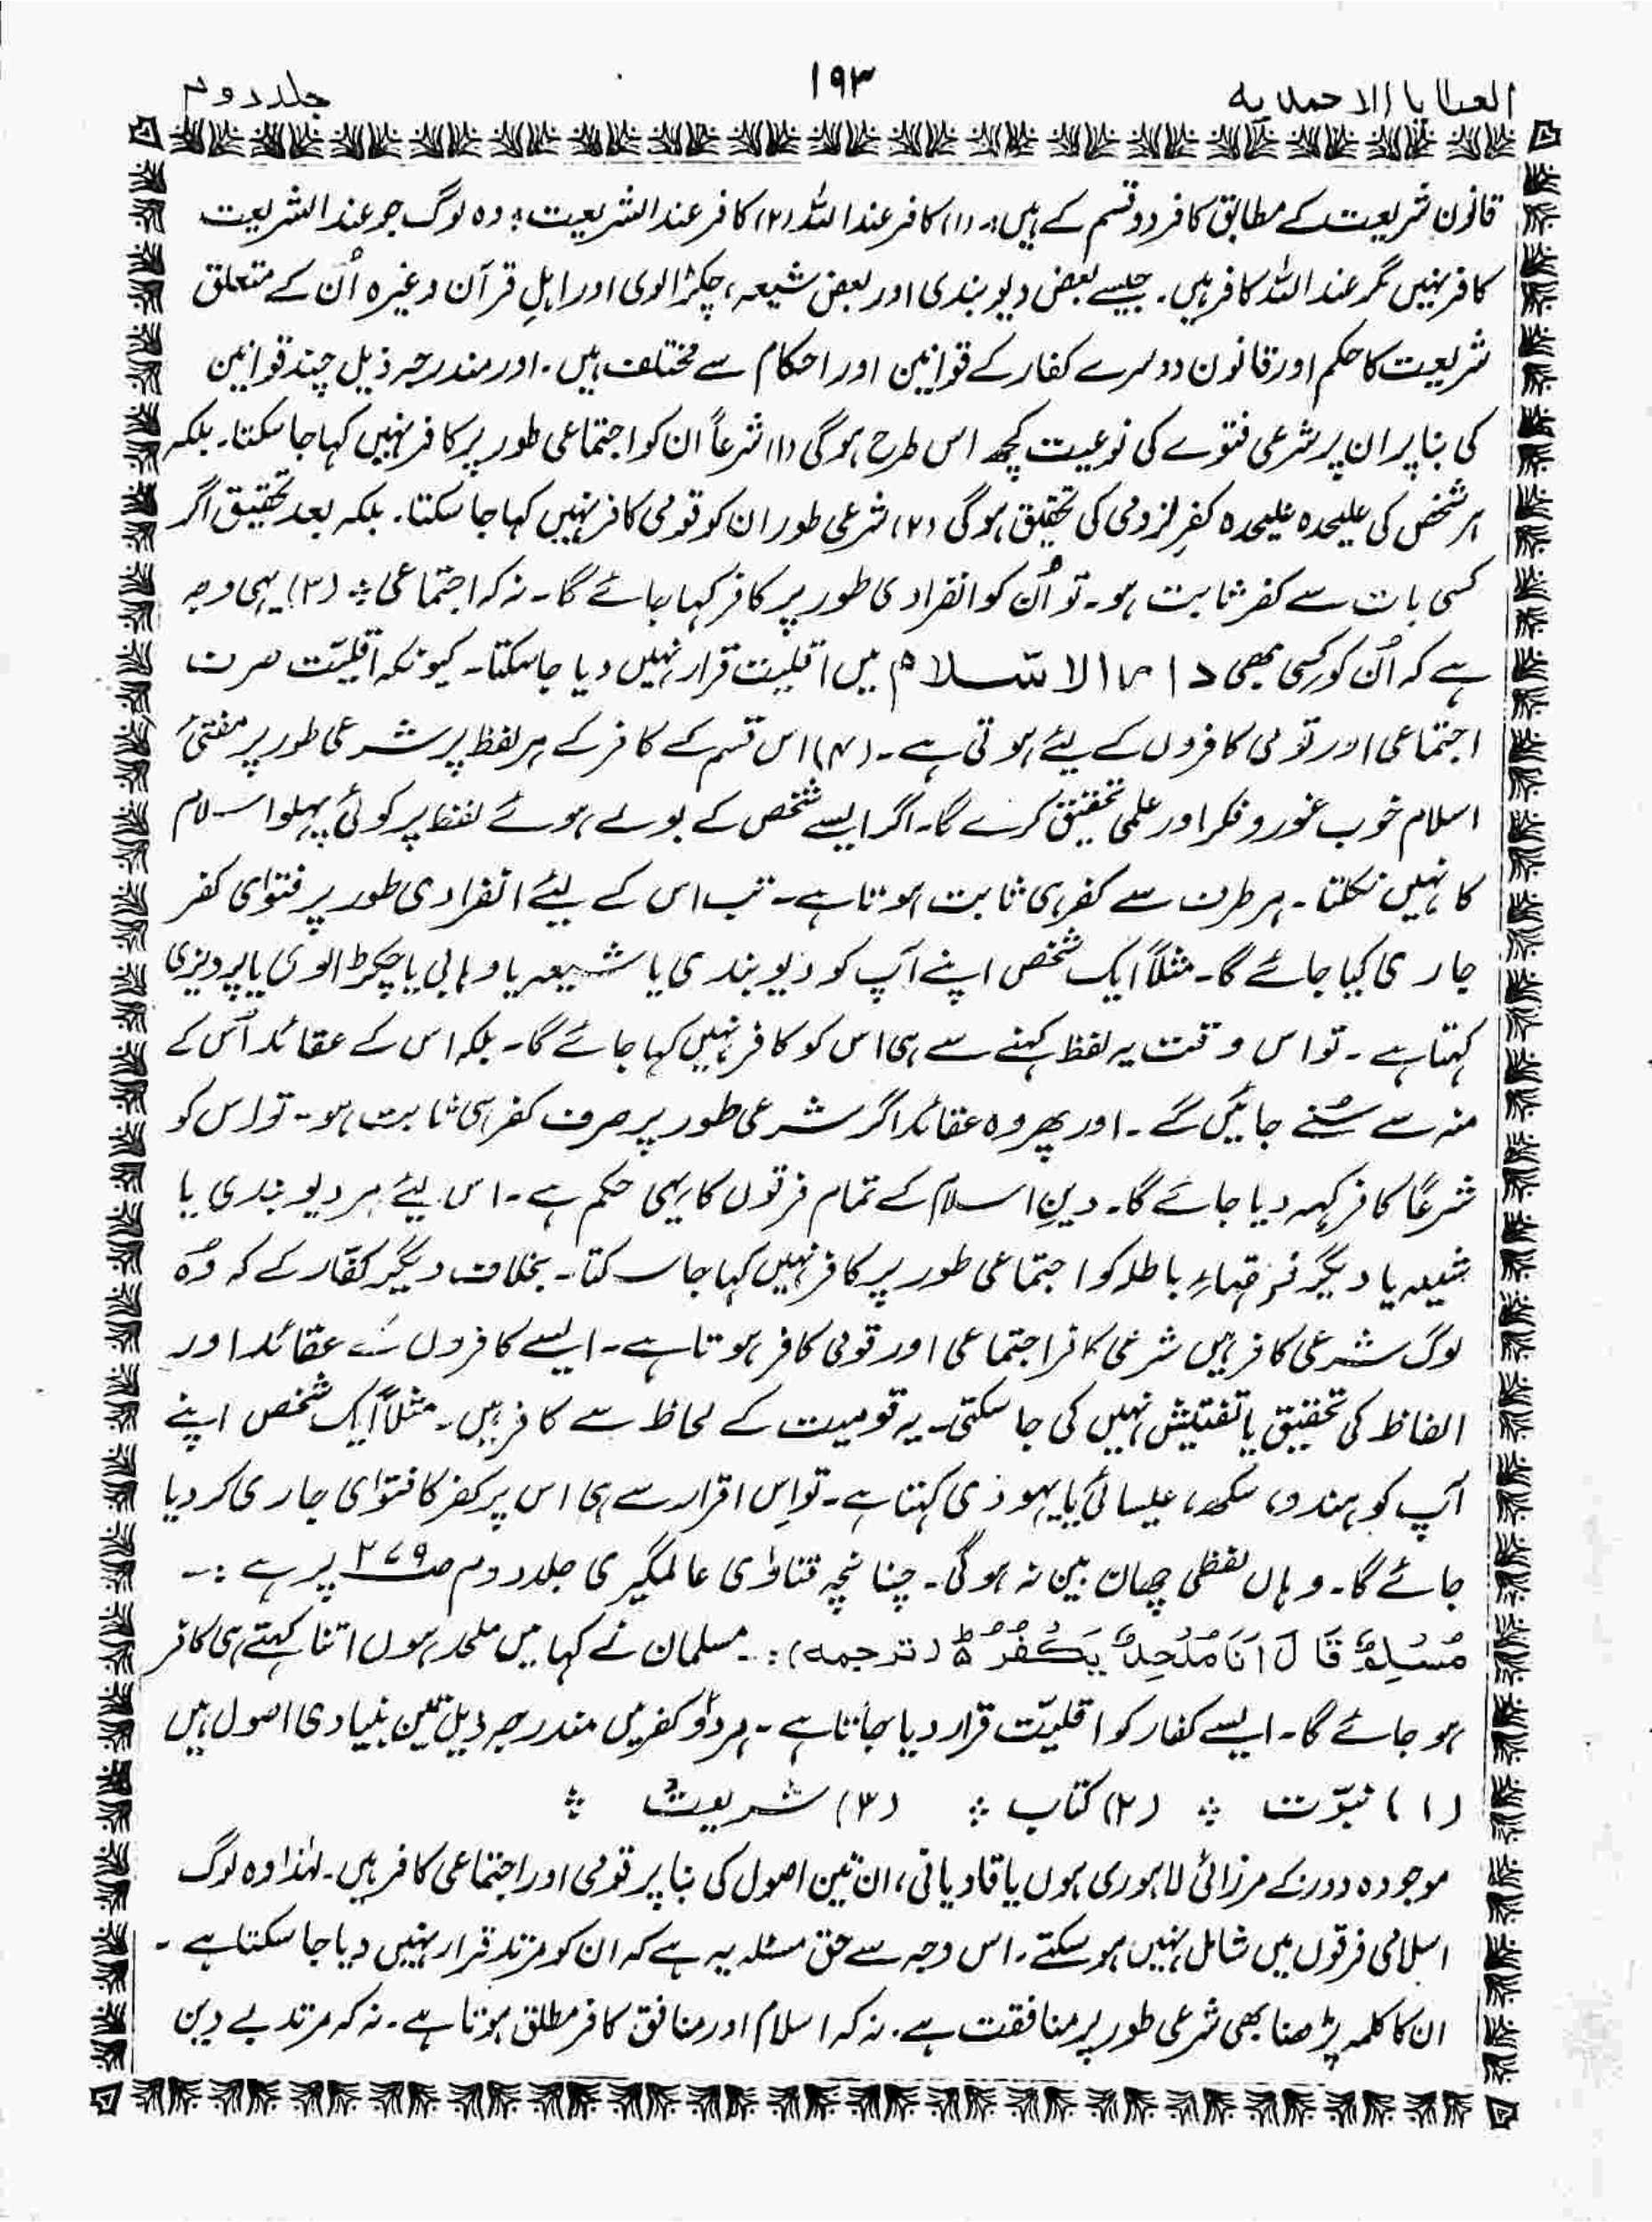 العطایا الاحمدیہ ۱۹۳ جلد دوم
قانونِ شریعت کے مطابق کافر دو قسم کے ہیں:۔ (۱) کافر عند اللہ (۲) کافر عند الشریعت ؛ وہ لوگ جو عند الشریعت
کافر نہیں مگر عند اللہ کافر ہیں۔ جیسے بعض دیوبندی اور بعض شیعہ، چکڑالوی اور اہلِ قرآن وغیرہ اُن کے متعلق
شریعت کا حکم اور قانون دوسرے کفار کے قوانین اور احکام سے مختلف ہیں۔ اور مندرجہ ذیل چند قوانین
کی بنا پر ان پر شرعی فتوے کی نوعیت کچھ اس طرح ہوگی (۱) شرعاً ان کو اجتماعی طور پر کافر نہیں کہا جا سکتا۔ بلکہ
ہر شخص کی علیحدہ علیحدہ کفرِ لزومی کی تحقیق ہوگی (۲) شرعی طور ان کو قومی کافر نہیں کہا جا سکتا۔ بلکہ بعد تحقیق اگر
کسی بات سے کفر ثابت ہو۔ تو اُن کو انفرادی طور پر کافر کہا جائے گا۔ نہ کہ اجتماعی ؛ (۳) یہی وجہ
ہے کہ اُن کو کسی بھی دارالاسلام میں اقلیت قرار نہیں دیا جا سکتا۔ کیونکہ اقلیّت صرف
اجتماعی اور قومی کافروں کے لیئے ہوتی ہے۔ (۴) اس قسم کے کافر کے ہر لفظ پر شرعی طور پر مفتیٔ
اسلام خوب غور و فکر اور علمی تحقیق کرے گا۔ اگر ایسے شخص کے بولے ہوئے لفظ پر کوئی پہلو اسلام
کا نہیں نکلتا۔ ہر طرف سے کفر ہی ثابت ہوتا ہے۔ تب اس کے لیئے انفرادی طور پر فتوٰی کفر
جاری کیا جائے گا۔ مثلاً ایک شخص اپنے آپ کو دیوبندی یا شیعہ یا وہابی یا چکڑالوی یا پرویزی
کہتا ہے۔ تو اس وقت یہ لفظ کہنے سے ہی اس کو کافر نہیں کہا جائے گا۔ بلکہ اس کے عقائد اُس کے
منہ سے سُنے جائیں گے۔ اور پھر وہ عقائد اگر شرعی طور پر صرف کفر ہی ثابت ہو۔ تو اس کو
شرعًا کافر کہہ دیا جائے گا۔ دینِ اسلام کے تمام فرقوں کا یہی حکم ہے۔ اس لیئے ہر دیوبندی یا
شیعہ یا دیگر فرقہاءِ باطلہ کو اجتماعی طور پر کافر نہیں کہا جا سکتا۔ بخلاف دیگر کفّار کے کہ وُہ
لوگ شرعی کافر ہیں شرعی کافر اجتماعی اور قومی کافر ہوتا ہے۔ ایسے کافروں کے عقائد اور
الفاظ کی تحقیق یا تفتیش نہیں کی جا سکتی۔ یہ قومیت کے لحاظ سے کافر ہیں۔ مثلاً ایک شخص اپنے
آپ کو ہندو، سکھ، عیسائی یا یہودی کہتا ہے۔ تو اِس اقرار سے ہی اس پر کفر کا فتوٰی جاری کر دیا
جائے گا۔ وہاں لفظی چھان بین نہ ہوگی۔ چنانچہ فتاوٰی عالمگیری جلد دوم صـ۲۷۹ پر ہے :۔
مُسْلِمٌ قَالَ اَنَا مُلْحِدٌ یَکْفُرُ ہٗ (ترجمہ) :۔ مسلمان نے کہا میں ملحد ہوں اتنا کہتے ہی کافر
ہو جائے گا۔ ایسے کفار کو اقلیّت قرار دیا جاتا ہے۔ ہر دو کفر میں مندرجہ ذیل تین بنیادی اصول ہیں
(۱) نبوّت ؛ (۲) کتاب ؛ (۳) شریعت ؛
موجودہ دور کے مرزائی لاہوری ہوں یا قادیانی، ان تین اصول کی بنا پر قومی اور اجتماعی کافر ہیں۔ لہٰذا وہ لوگ
اسلامی فرقوں میں شامل نہیں ہو سکتے۔ اس وجہ سے حق مسئلہ یہ ہے کہ ان کو مرتد قرار نہیں دیا جا سکتا ہے۔
ان کا کلمہ پڑھنا بھی شرعی طور پر منافقت ہے۔ نہ کہ اسلام اور منافق کافر مطلق ہوتا ہے۔ نہ کہ مرتد بے دین